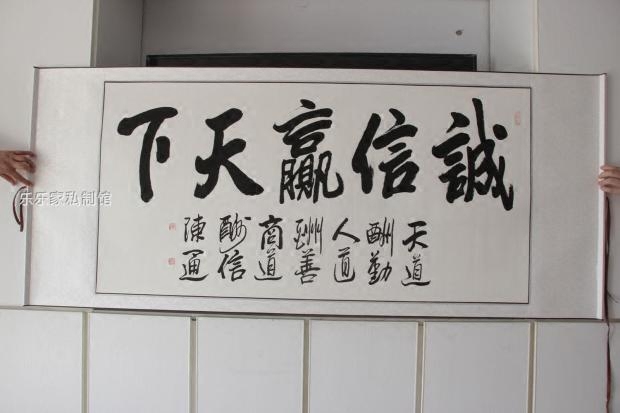 誠信贏天下
天道
酬勤
人道
酬善
商道
酬信
陳通
乐乐家私制馆